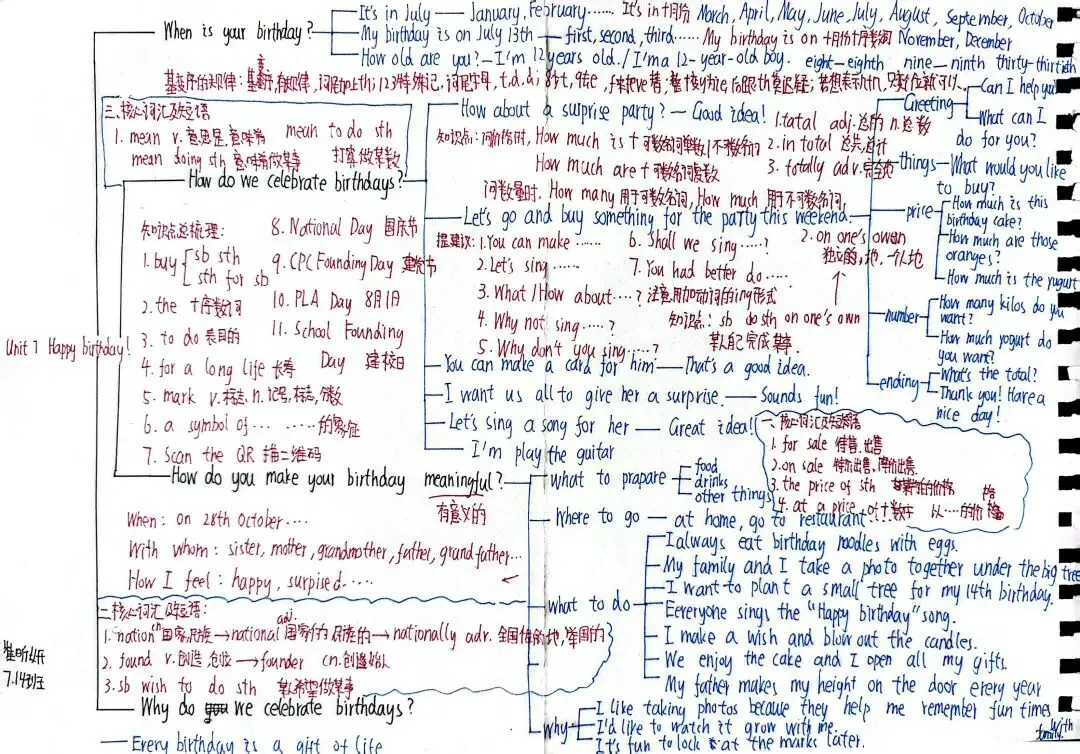 Unit 7 Happy birthday!
When is your birthday?
It's in July — January, February…… It's in 十月份 March, April, May, June, July, August, September, October
My birthday is on July 13th — first, second, third…… My birthday is on 十月份十序数词 November, December
How old are you? — I'm 12 years old. / I'm a 12-year-old boy. eight-eighth nine-ninth thirty-thirtieth
三、核心词汇及短语
1. mean v. 意思是,意味着 mean to do sth
mean doing sth 意味着做某事 打算做某事
How do we celebrate birthdays?
How about a surprise party? — Good idea!
知识点: 问价格时, How much is + 可数名词单数/不可数名词
How much are + 可数名词复数
问数量时, How many 用于可数名词, How much 用于不可数名词
1. tatal adj. 总的 n. 总数
2. in total 总共,总计
3. totally adv. 完全地
Let's go and buy something for the party this weekend.
提建议: 1. You can make ……
2. Let's sing ……
3. What / How about……? 注意用加动词的ing形式
4. Why not sing ……?
5. Why don't you sing……?
6. Shall we sing ……?
7. You had better do ……
2. on one's owen
独立的,地,一人地
知识点: sb do sth on one's own
某人自己完成某事
You can make a card for him — That's a good idea.
I want us all to give her a surprise. — Sounds fun!
Let's sing a song for her — Great idea!
I'm play the guitar
Greeting
Can I help you
What can I do for you?
things — What would you like to buy?
price
How much is this birthday cake?
How much are those oranges?
How much is the yugurt
number
How many kilos do you want?
How much yogurt do you want?
ending
What's the total?
Thank you! Have a nice day!
知识点总梳理:
1. buy sb sth
sth for sb
2. the 十序数词
3. to do 表目的
4. for a long life 长寿
5. mark v. 标志, n. 记号,标志,分数
6. a symbol of… ……的象征
7. Scan the QR 扫二维码
8. National Day 国庆节
9. CPC Founding Day 建党节
10. PLA Day 8月1日
11. School Founding Day 建校日
How do you make your birthday meaningful?
有意义的
When: on 28th October….
With whom: sister, mother, grandmother, father, grandfather…
How I feel: happy, surpised…..
what to prapare
food
drinks
other things
Where to go — at home, go to restaurant……
what to do
I always eat birthday noodles with eggs.
My family and I take a photo together under the big tree
I want to plant a small tree for my 14th birthday.
Eeveryone sings the "Happy birthday" song.
I make a wish and blow out the candles.
We enjoy the cake and I open all my gifts.
My father makes my height on the door every year
why
I like taking photos because they help me remember fun times with family.
I'd like to watch it grow with me.
It's fun to lock at the marks later.
一、核心词汇及短语
1. for sale 待售,出售
2. on sale 特价出售,降价出售
3. the price of sth
4. at a price of 十数字 从……的价格
二、核心词汇及短语:
1. nation cn 国家,民族 → national adj. 国家的,民族的 → nationally adv. 全国性的地,举国的
2. found v. 创造,创立 → founder cn. 创始人
3. sb wish to do sth 某人希望做某事
Why do we celebrate birthdays?
— Every birthday is a gift of life
7.14班